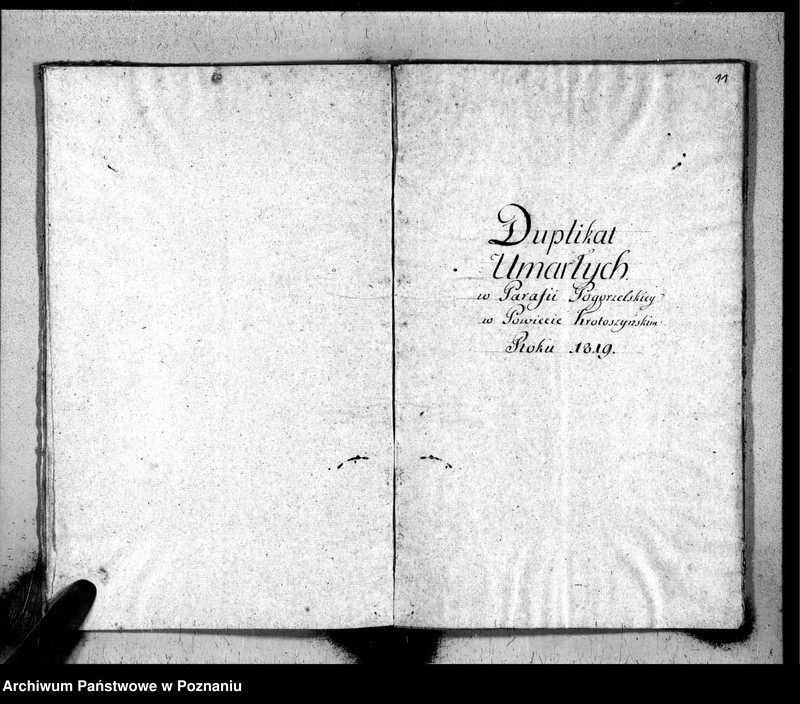 11
Duplikat
Umarłych
w Parafii Pogorzelskiey
w Powiecie Krotoszyńskim
Roku 1819.
Archiwum Państwowe w Poznaniu